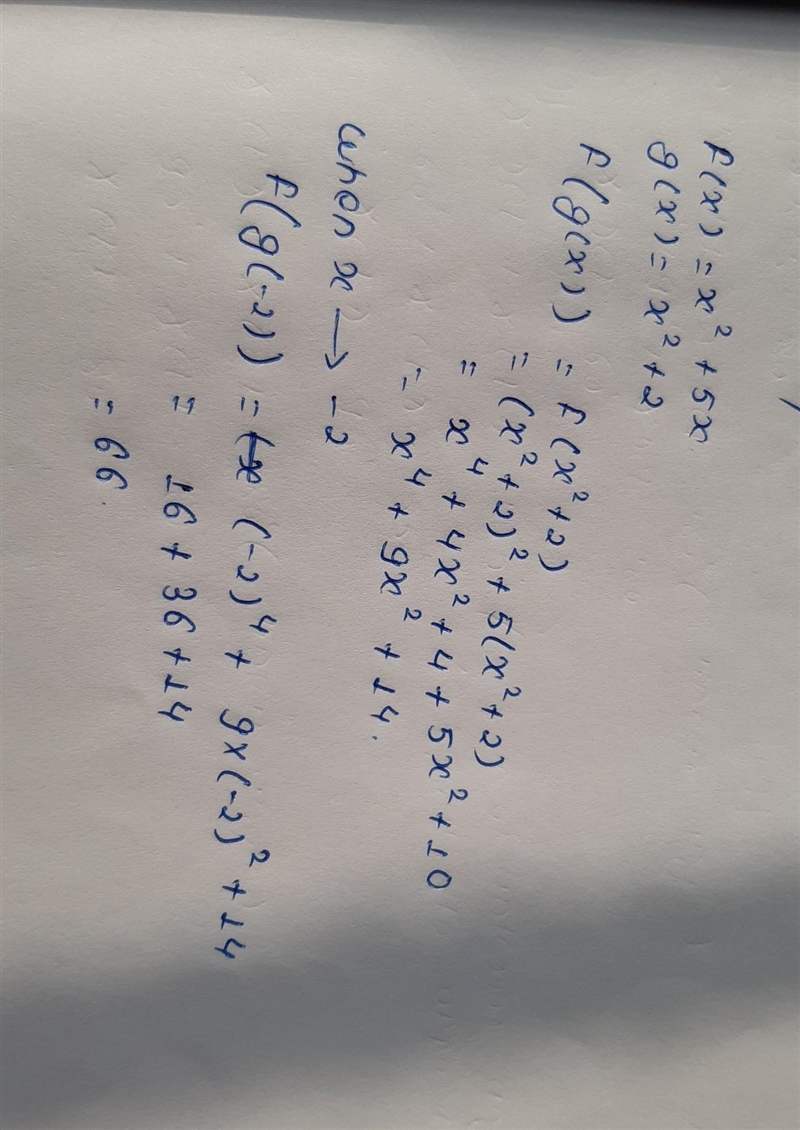 f(x) = x² + 5x
g(x) = x² + 2
f(g(x)) = f(x²+2)
= (x²+2)² + 5(x²+2)
= x⁴ + 4x² + 4 + 5x² + 10
= x⁴ + 9x² + 14.
when x → -2
f(g(-2)) = (-2)⁴ + 9×(-2)² + 14
= 16 + 36 + 14
= 66.